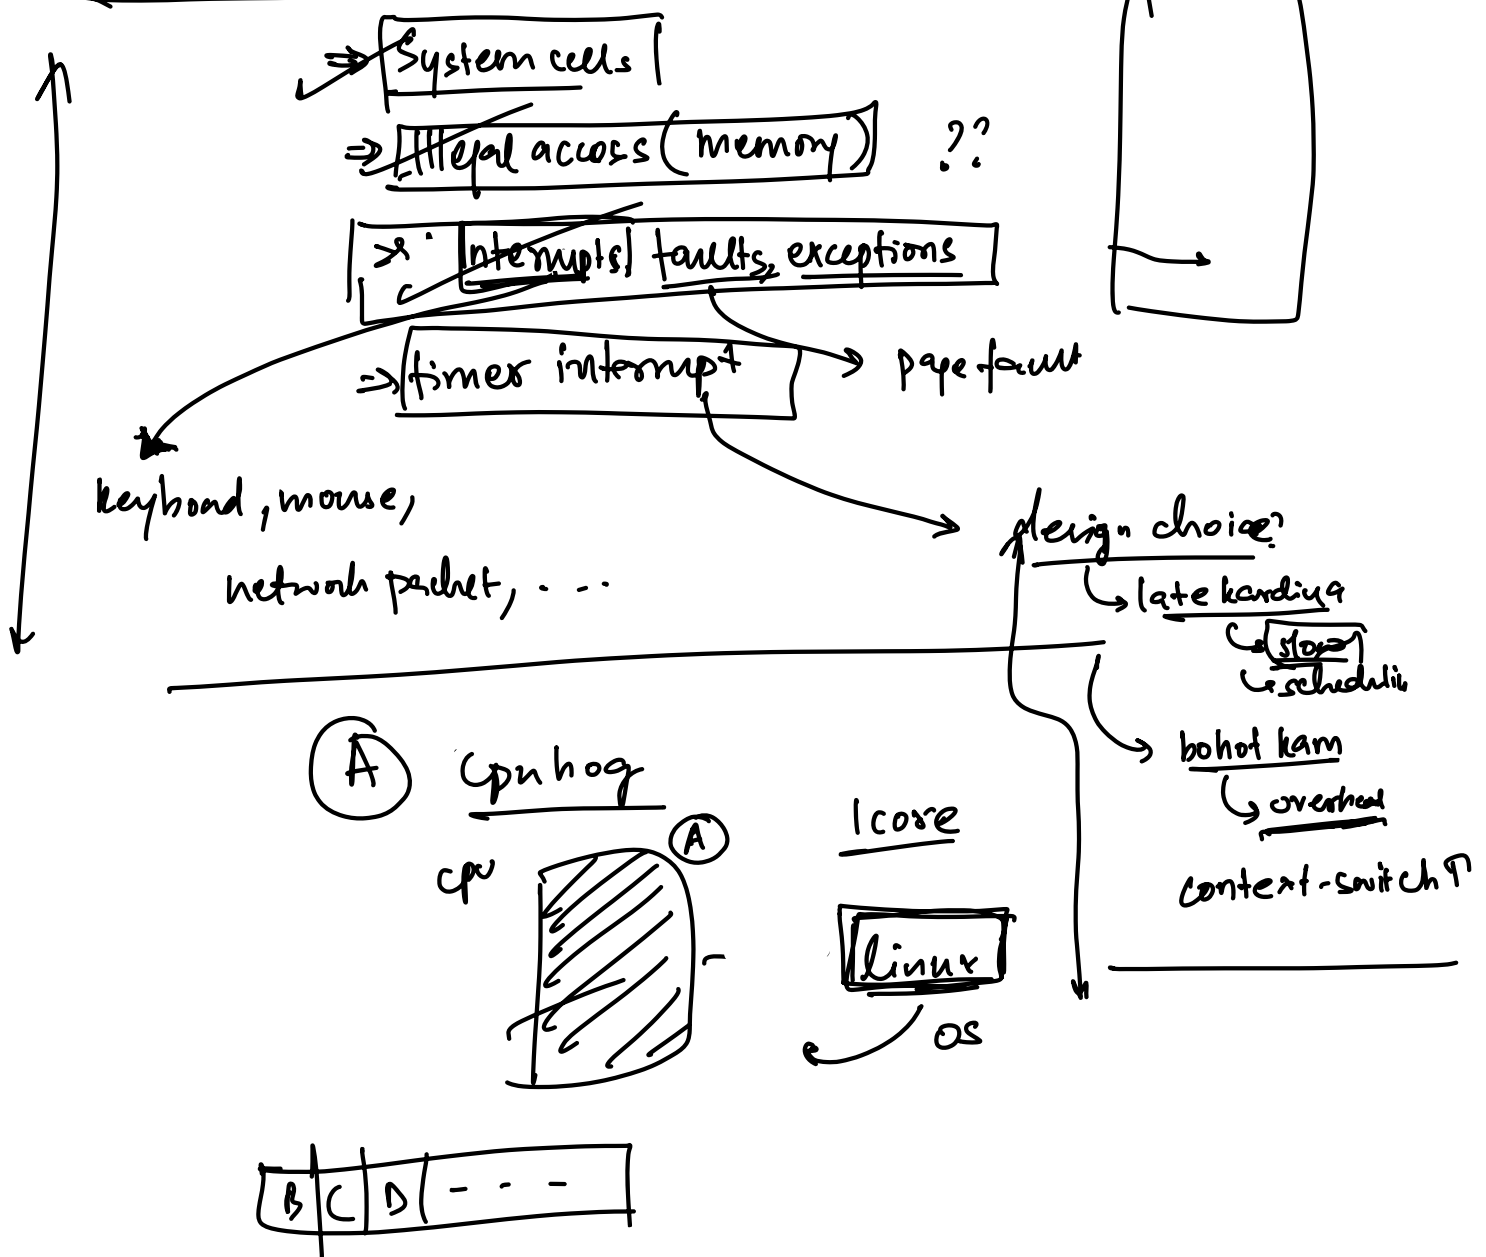 ⇒ System cells
⇒ Illegal access (memory) ??
⇒ Interrupts, faults, exceptions
⇒ timer interrupt
page fault
keyboard, mouse,
network packet, - - - -
design choice?
late kardiya
slow
schedulin
bohot kam
overhead
context-switch ↑
A
cpu hog
A
1 core
cpu
linux
OS
B C D - - -